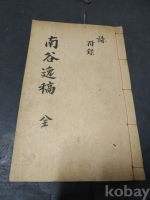 詩
附錄
南谷遺稿 全
kobay